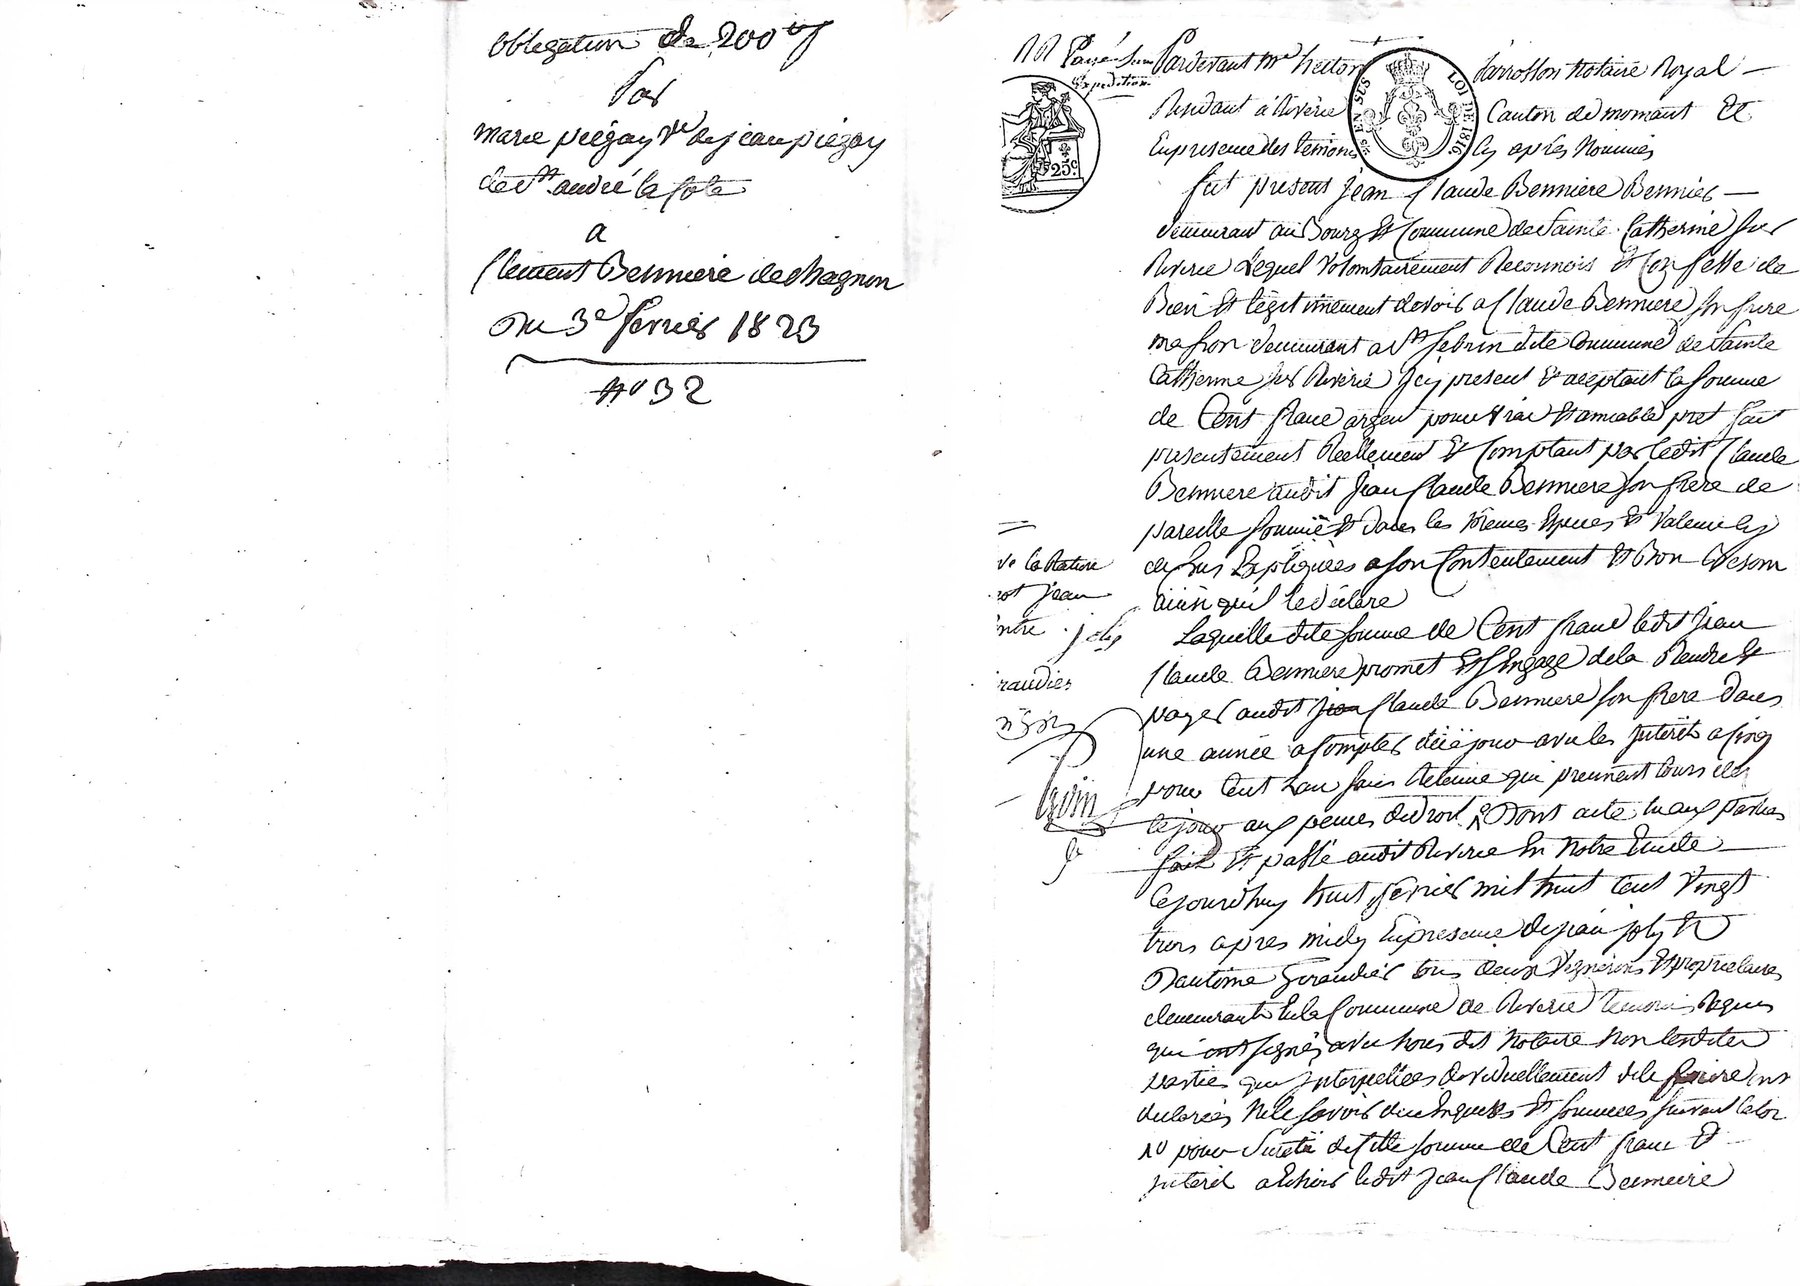 obligation de 200 fs
Par
marie piégay Ve de jean piégay
de St andré la Cote
a
Clement Bennière de chagnon
Du 3e fevrier 1823
No 32
NN Payé une
Expedition
25c.
EN SUS
LOI DE 1816
Pardevant Me hector Notaire Royal
Residant a Riverie Canton de mornant Et
En presence des temoins Cy après Nommés
fut present jean Claude Bennière Bennier
demeurant au Bourg Et Commune de Sainte Catherine sur
Riverie Lequel volontairement Reconnois Et Confesse de
Bien Et légitimement devoir a Claude Bennière son frere
masson demeurant a St dite Commune de Sainte
Catherine sur Riverie Icy present Et aceptant la somme
de Cent franc argent pour vrai Et amiable pret fait
presentement Reellement Et Comptant par ledit Claude
Bennière audit Jean Claude Bennière son frere de
pareille somme Et dans les mêmes Espeses Et valeur Cy
dessus Expliquées a son Contentement Et Bon Besoin
ainsi qu'il le déclare
Laquelle dite somme de Cent franc ledit Jean
Claude Bennière promet Et S'Engage de la Rendre Et
payer audit jean Claude Bennière son frere Dans
une année a Compter de ce jour avec les Interêt a Cinq
pour Cent L'an sans Retenue qui prennent Cours de
ce jour aux peines de droit Dont acte lu aux parties
fait Et passé audit Riverie En Notre Etude
Cejourd'huy huit fevrier mil huit Cent Vingt
trois apres midy En presence de jean joly Et
D'antoine Giraudier tous deux vignerons Et proprietaires
demeurants En la Commune de Riverie temoins Requis
qui ont signés avec Nous dit Notaire Non lesdites
parties qui Interpellées Individuellement de le faire ont
declarées Ne le savoir de ce Enquises Et sommées suivant la loi
No pour Sureté de cette somme de Cent franc Et
Interêt a Echoir ledit Jean Claude Bennière
la Rature
mot jean
joly
Giraudier